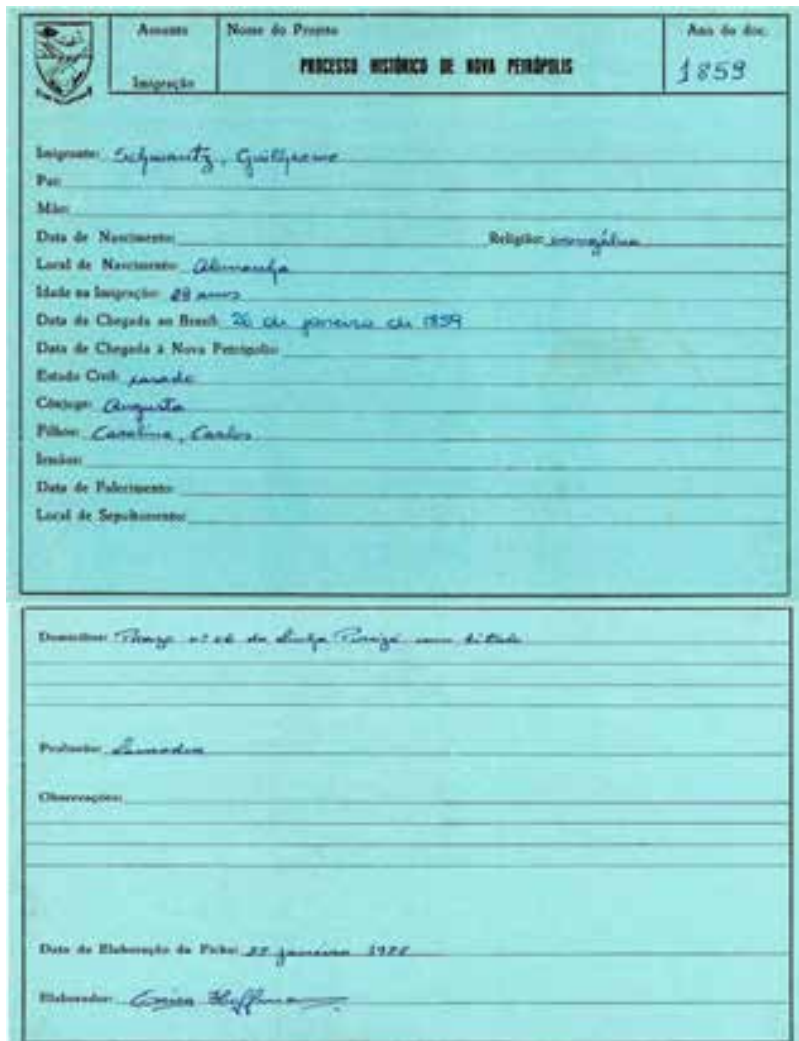 Assunto
Nome do Projeto
Ano do doc.
Imigração
PROCESSO HISTÓRICO DE NOVA PETRÓPOLIS
1859
Imigrante: Schwantz, Guilherme
Pai:
Mãe:
Data de Nascimento: Religião: evangélica
Local de Nascimento: Alemanha
Idade na Imigração: 28 anos
Data da Chegada ao Brasil: 26 de janeiro de 1859
Data de Chegada à Nova Petrópolis:
Estado Civil: casado
Cônjuge: Augusta
Filhos: Carolina, Carlos
Irmãos:
Data de Falecimento:
Local de Sepultamento:
Domicílio: Prazo nº da Linha
Profissão: Lavrador
Observações:
Data de Elaboração da Ficha: janeiro
Elaborador: Hoffmann